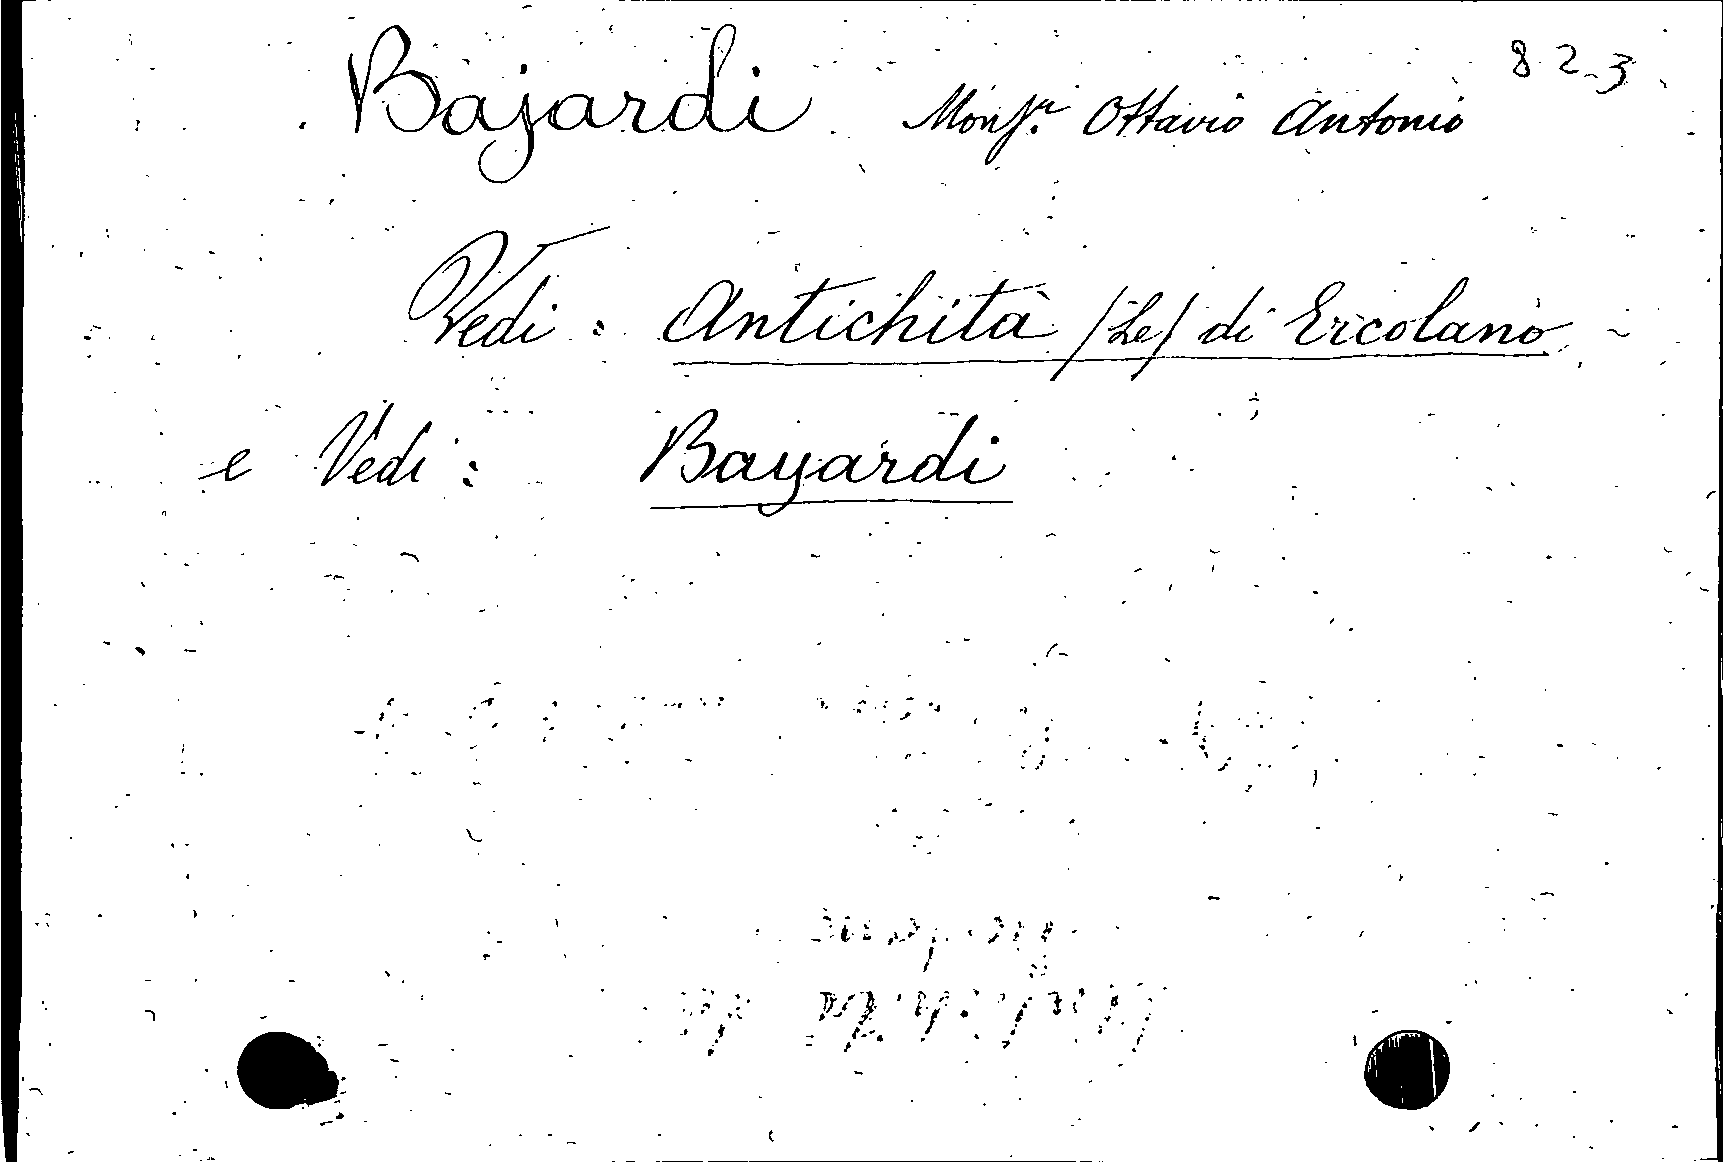 823
Bajardi Monsr. Ottavio Antonio
Vedi: Antichità (Le) di Ercolano
e Vedi: Bayardi